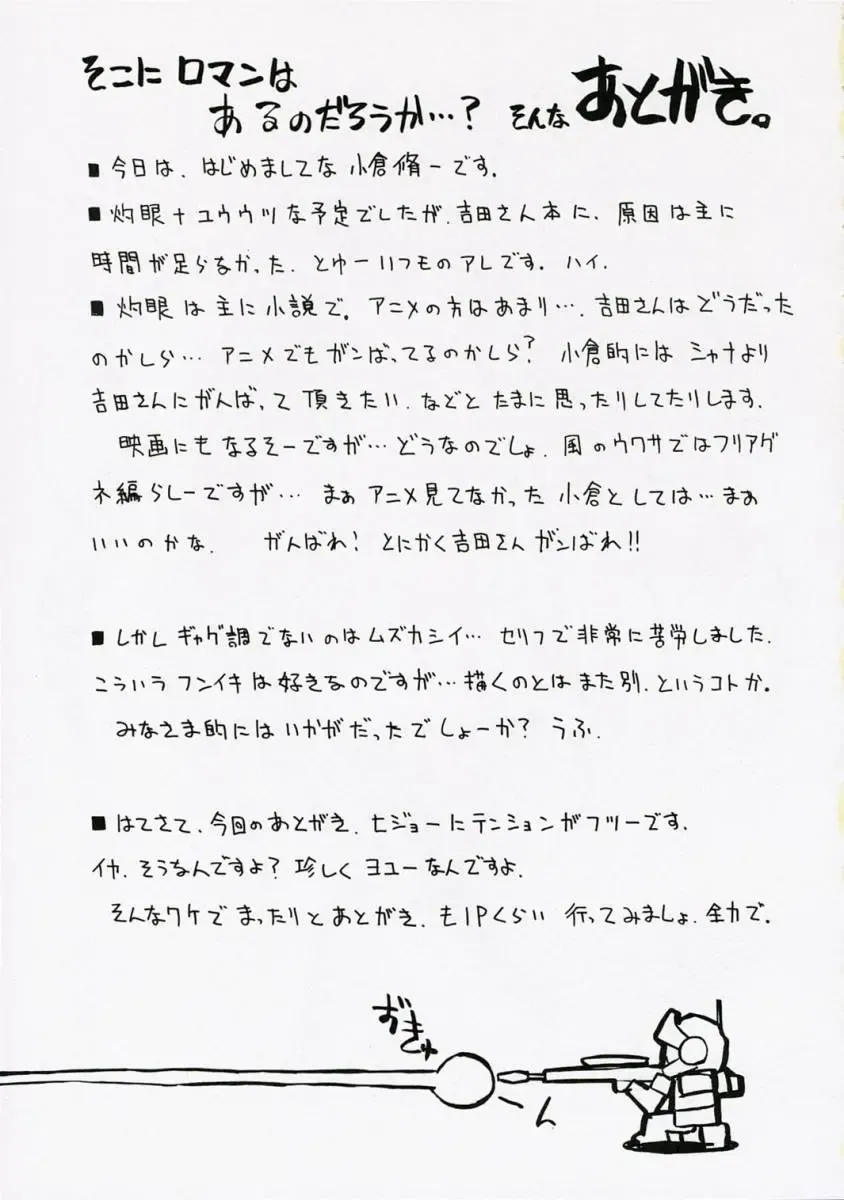 そこに ロマンは
あるのだろうか…? そんな あとがき。
■今日は、はじめましてな 小倉脩一です。
■灼眼+ユウウツな予定でしたが、吉田さん本に、原因は主に
時間が足らなかった、とゆーいつものアレです。ハイ、
■灼眼は主に小説で。アニメの方はあまり…、吉田さんはどうだった
のかしら…アニメでもガンばってるのかしら? 小倉的には シャナより
吉田さんにがんばって 頂きたい、などと たまに思ったりしてたりします。
映画にも なるそーですが…どうなのでしょ、風のウワサではフリアグ
ネ編らしーですが… まぁ アニメ見てなかった 小倉としては…まぁ
いいのかな、 がんばれ! とにかく吉田さん ガンばれ!!
■しかし ギャグ調でないのはムズカシイ… セリフで非常に苦労しました、
こういう フンイキは好きなのですが…描くのとは また別、というコトか。
みなさま的には いかがだったでしょーか? うふ、
■はてさて、今回のあとがき、ヒジョーにテンションがフツーです、
イヤ、そうなんですよ? 珍しく ヨユーなんですよ、
そんなワケで まったりと あとがき、も1Pくらい 行ってみましょ、全力で。
おきゅ
ーん